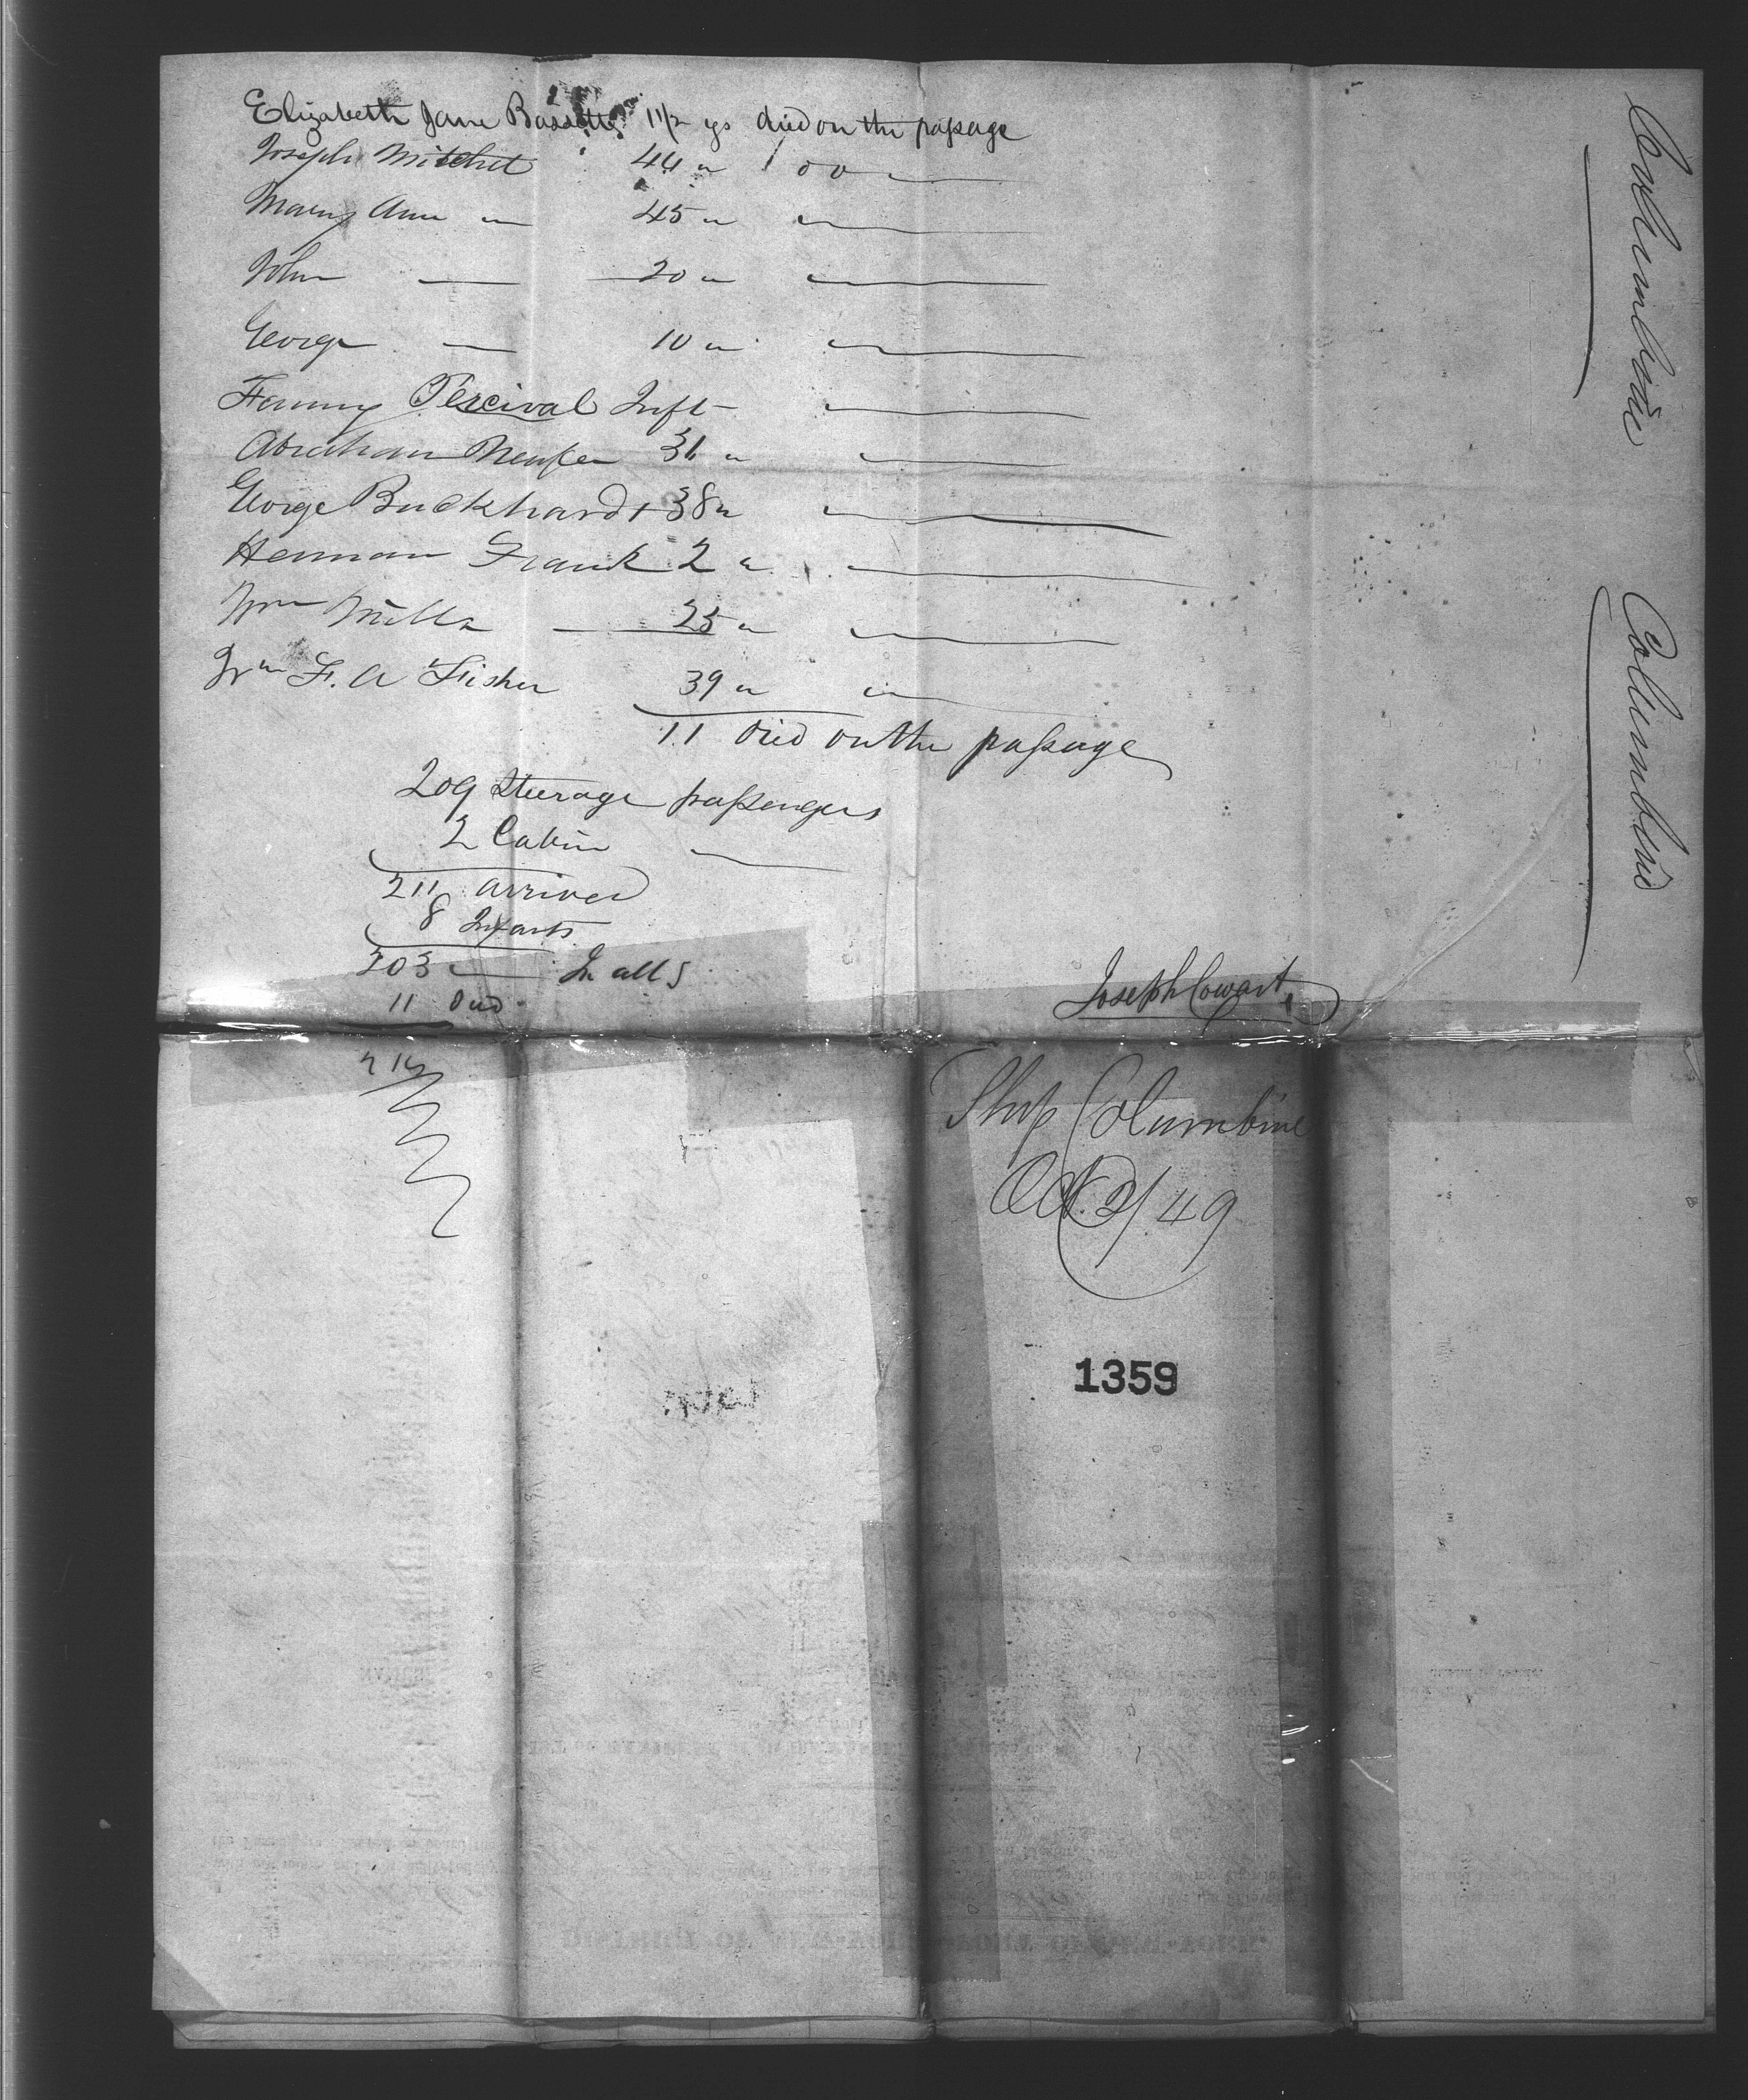 Elizabeth Jane Bassette 1 1/2 ys died on the passage
Joseph Mitchel 44 " do
Mary Ann " 45 " "
John — 20 " "
George — 10 " "
Fanny Percival Inft "
Abraham 31 " "
George Buckhardt 38 " "
Herman Frank 2 " "
Wm Mills — 25 " "
Wm F. A Fisher 39 " "
11 died on the passage
209 Steerage passengers
2 Cabin —
211 arrived
8 Infants
203 — In all
11 died
214
Joseph Cowart
Ship Columbine
Oct. 2/49
1359
Columbine
Columbine